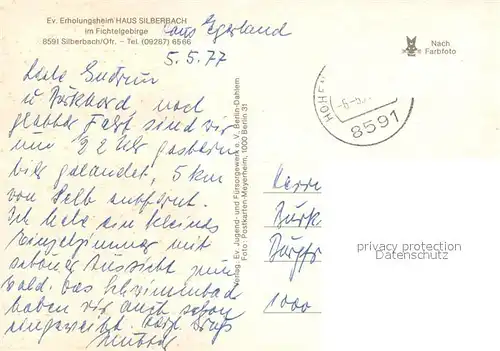 Ev. Erholungsheim HAUS SILBERBACH
im Fichtelgebirge
8591 Silberbach/Ofr. - Tel. (09287) 6566
Egerland
5.5.77
Liebe Gudrun
u. Burkhard nach
glatter Fahrt sind wir
um 22 Uhr gestern
hier gelandet, 5 km
von Selb entfernt.
Ich habe ein kleines
Einzelzimmer mit
schöner Aussicht zum
Wald. Das Schwimmbad
haben wir auch schon
eingeweiht. Herzl. Gruß
Mutter
Verlag: Ev. Jugend- und Fürsorgewerk e. V. Berlin-Dahlem
Foto: Postkarten-Meyerheim, 1000 Berlin 31
Nach
Farbfoto
HOHEN
-6.-5.
8591
Herrn
Burk
1000
privacy protection
Datenschutz